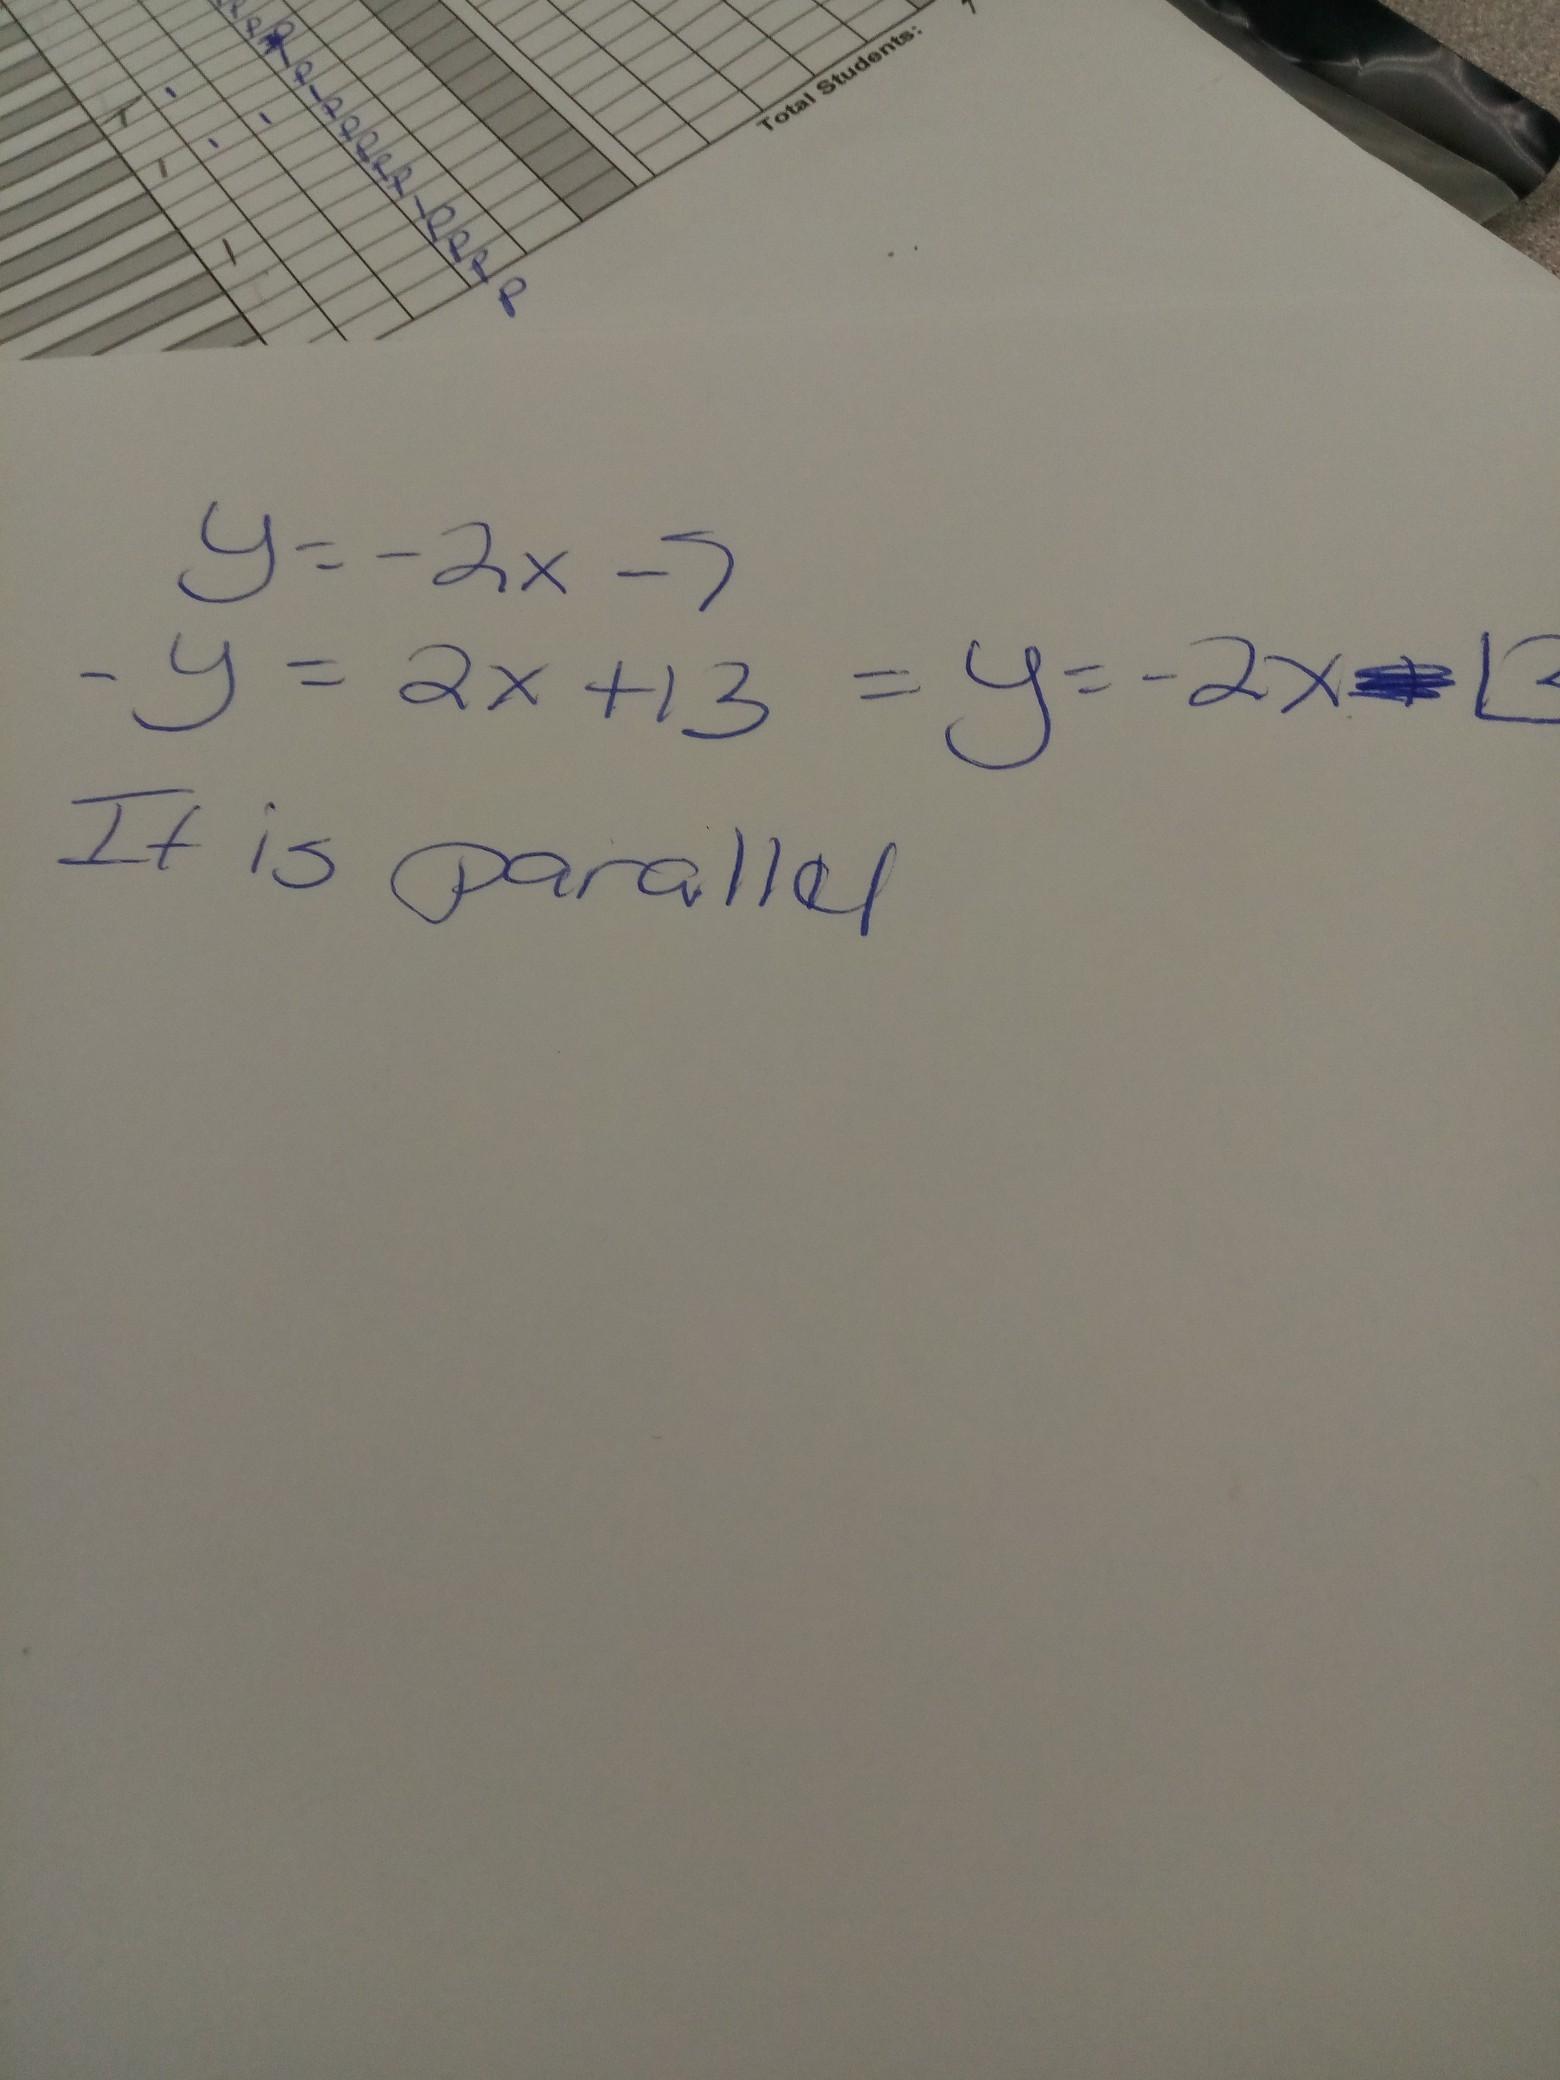 Total Students:
y = -2x -7
-y = 2x +13 = y = -2x - 13
It is parallel